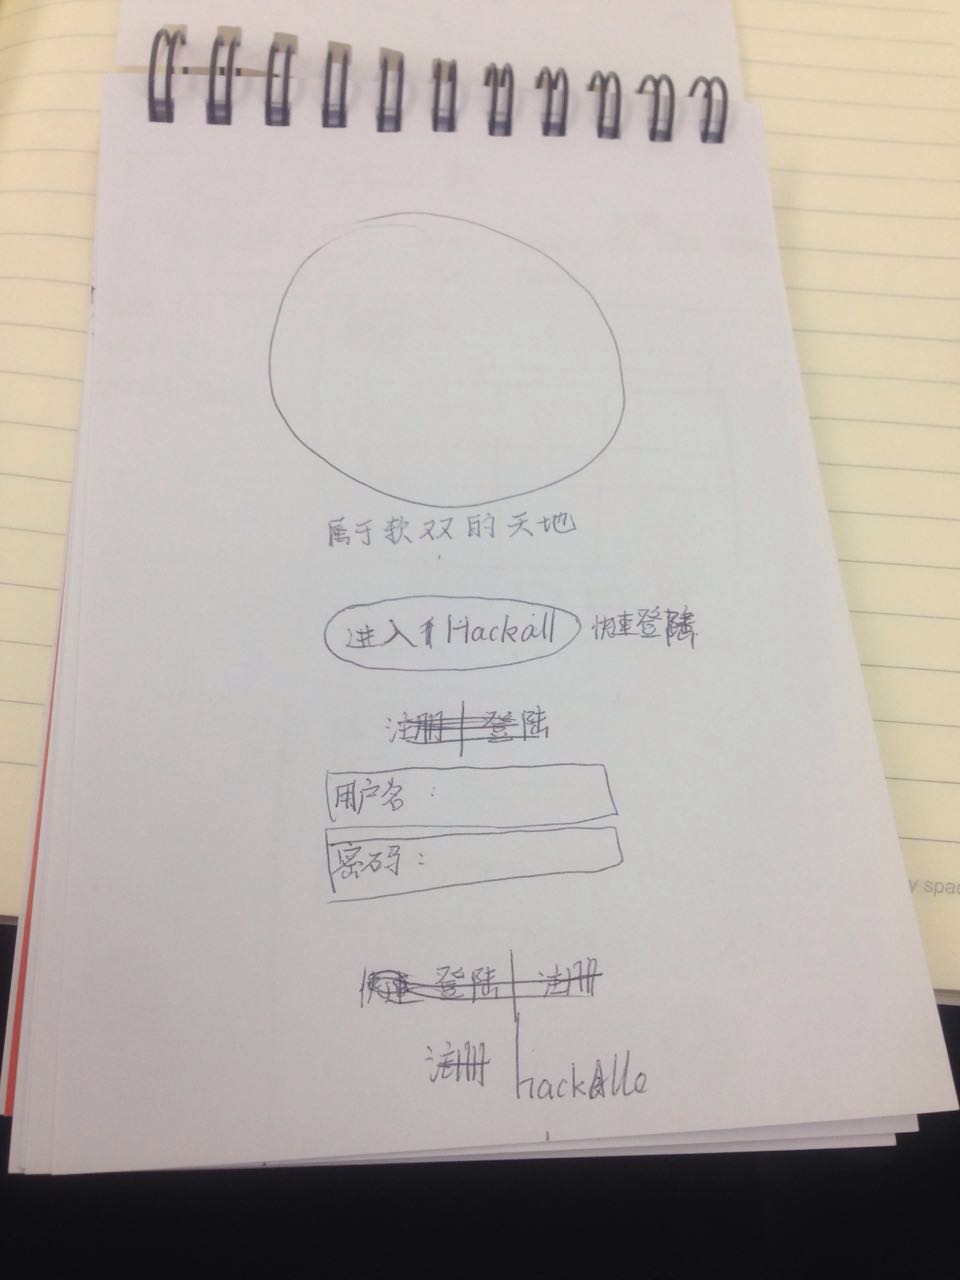 属于软双的天地
进入 Hackall 快速登陆
注册 | 登陆
用户名：
密码：
快速登陆 | 注册
注册 | hackAll
y spac